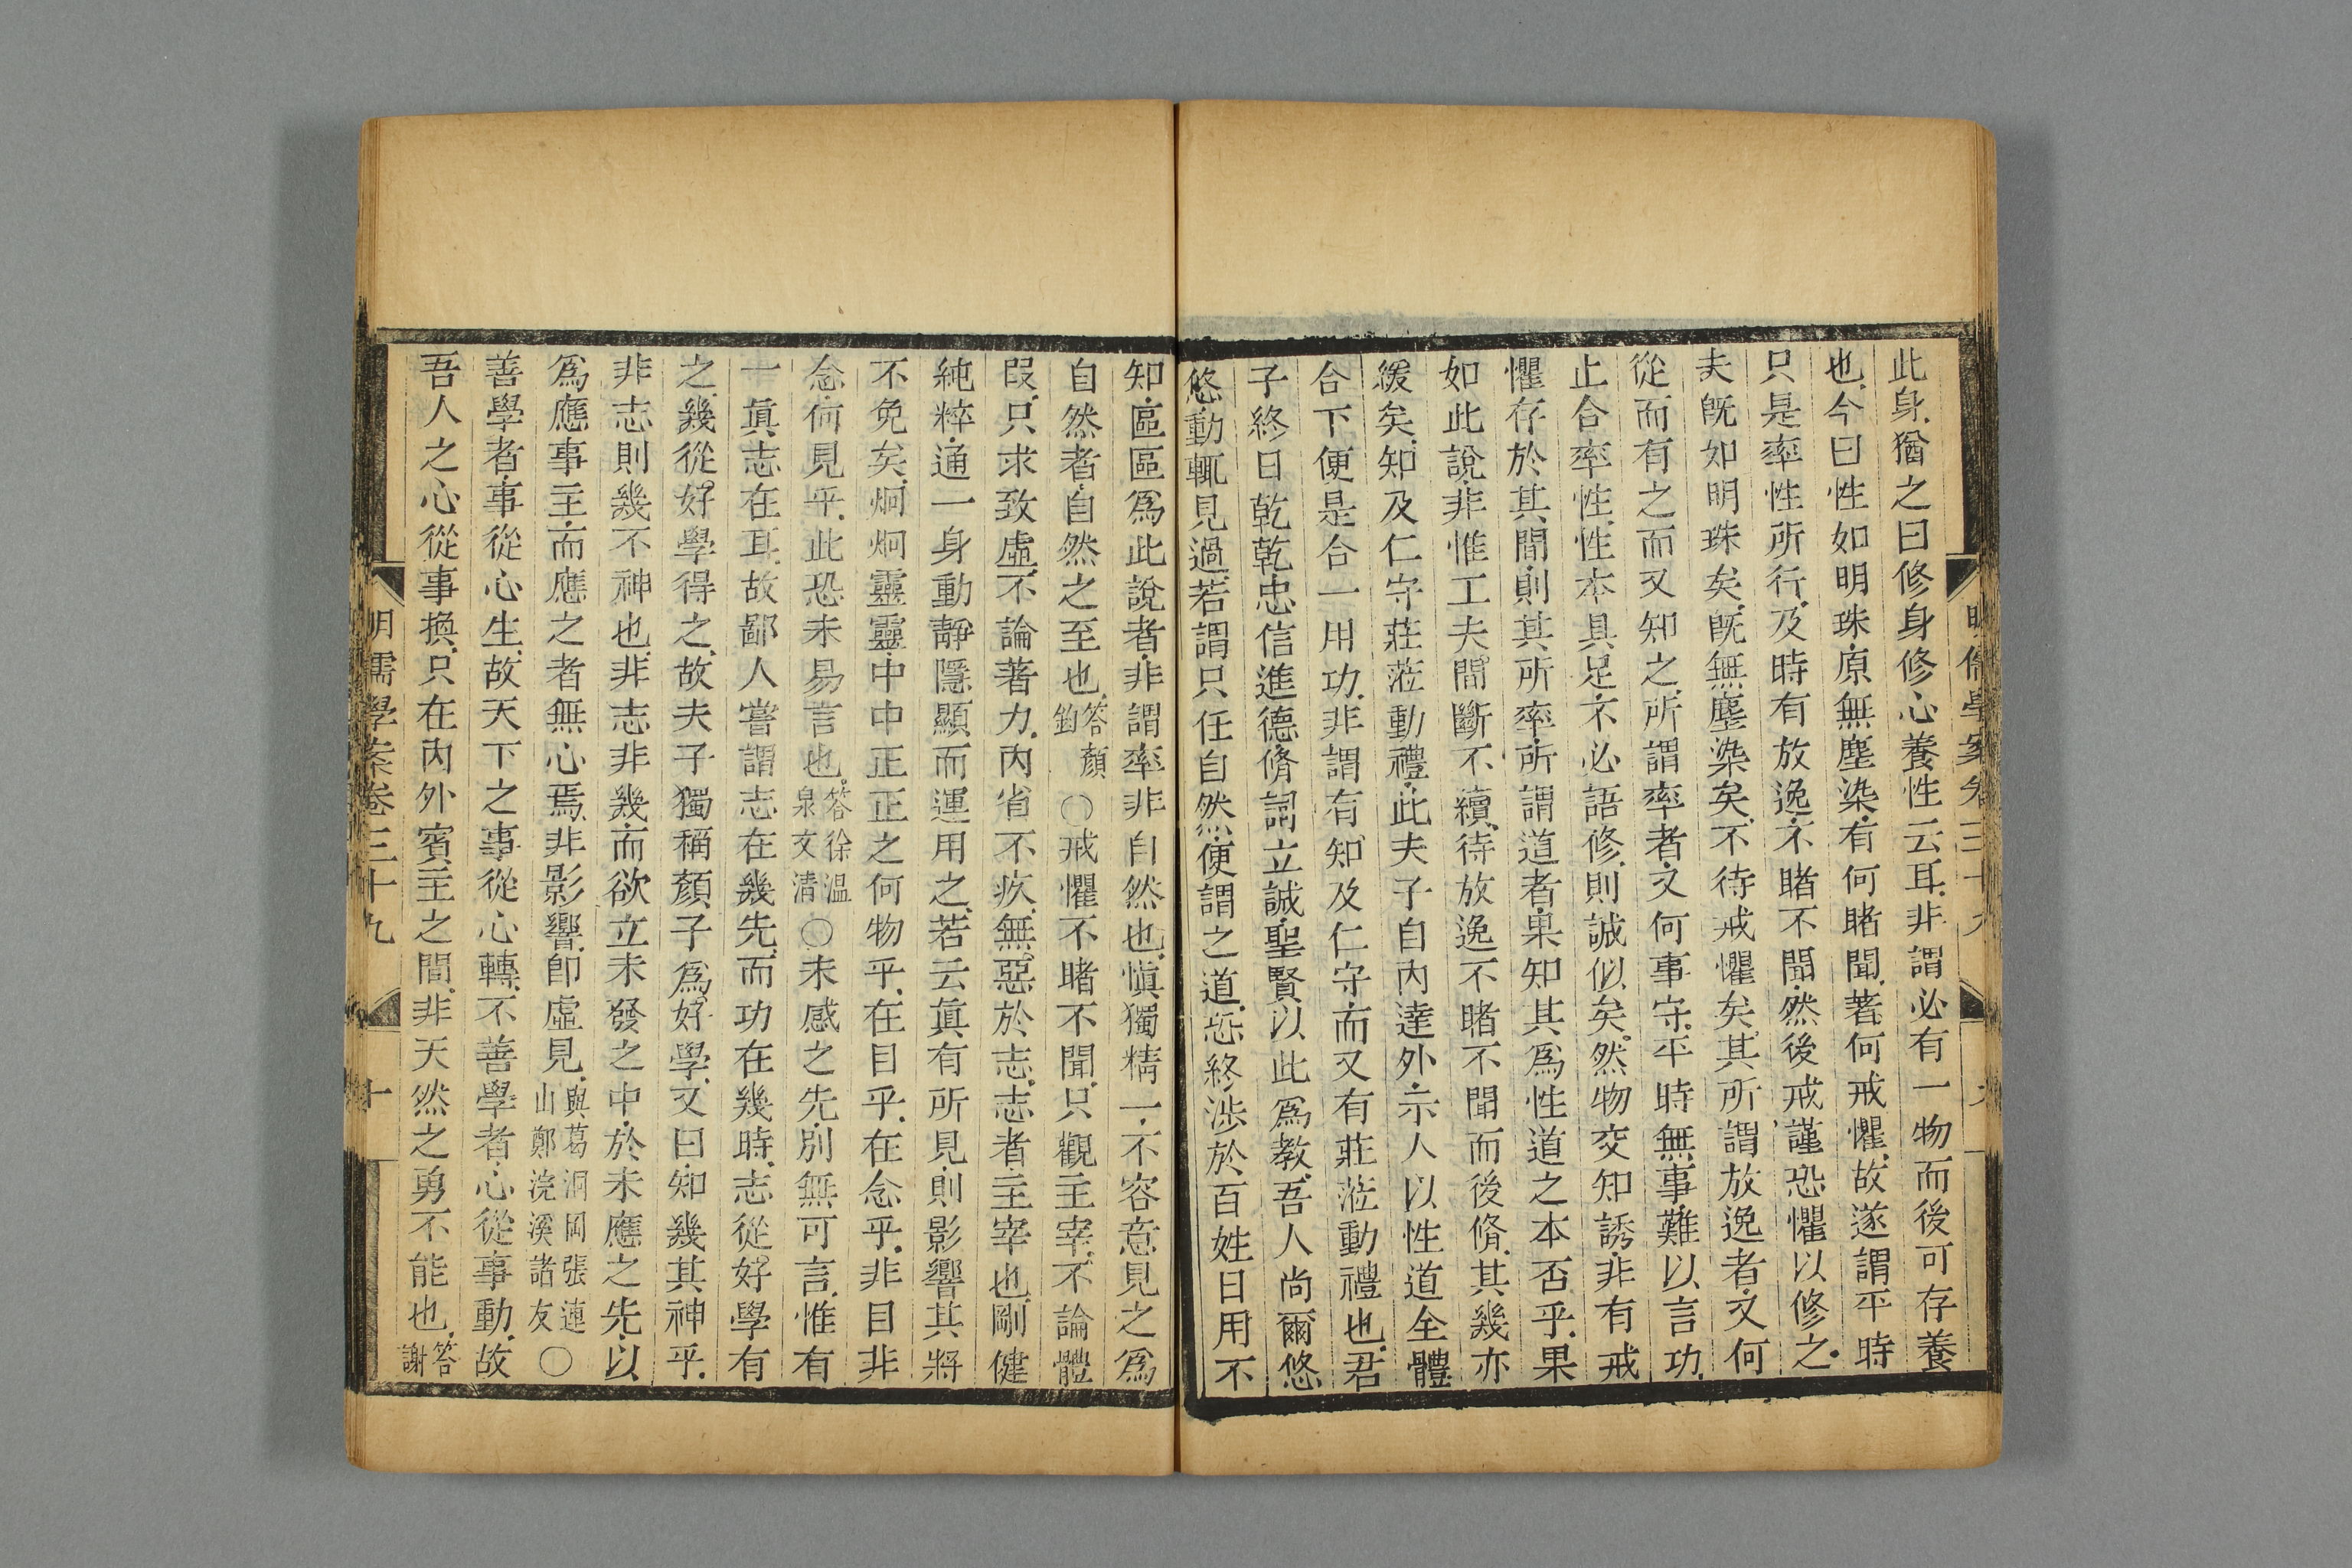 此身猶之曰修身修心養性云耳非謂必有一物而後可存養
也今曰性如明珠原無塵染有何睹聞著何戒懼故遂謂平時
只是率性所行及時有放逸不睹不聞然後戒謹恐懼以修之
夫旣如明珠矣旣無塵染矣不待戒懼矣其所謂放逸者又何
從而有之而又知之所謂率者又何事守平時無事難以言功
止合率性性本具足不必語修則誠似矣然物交知誘非有戒
懼存於其間則其所率所謂道者果知其爲性道之本否乎果
如此說非惟工夫間斷不續待放逸不睹不聞而後脩其幾亦
緩矣知及仁守莊蒞動禮此夫子自內達外示人以性道全體
合下便是合一用功非謂有知及仁守而又有莊蒞動禮也君
子終日乾乾忠信進德脩詞立誠聖賢以此爲教吾人尚爾悠
悠動輒見過若謂只任自然便謂之道恐終涉於百姓日用不
知區區爲此說者非謂率非自然也愼獨精一不容意見之爲
自然者自然之至也答顏鈞〇戒懼不睹不聞只觀主宰不論體
段只求致虛不論著力內省不疚無惡於志志者主宰也剛健
純粹通一身動靜隱顯而運用之若云眞有所見則影響其將
不免矣炯炯靈靈中中正正之何物乎在目乎在念乎非目非
念何見乎此恐未易言也答徐溫泉文清〇未感之先別無可言惟有
一眞志在耳故鄙人嘗謂志在幾先而功在幾時志從好學有
之幾從好學得之故夫子獨稱顏子爲好學又曰知幾其神乎
非志則幾不神也非志非幾而欲立未發之中於未應之先以
爲應事主而應之者無心焉非影響卽虛見與葛洞岡張連山鄭浣溪諸友〇
善學者事從心生故天下之事從心轉不善學者心從事動故
吾人之心從事換只在內外賓主之間非天然之勇不能也答謝
明儒學案卷三十九
十